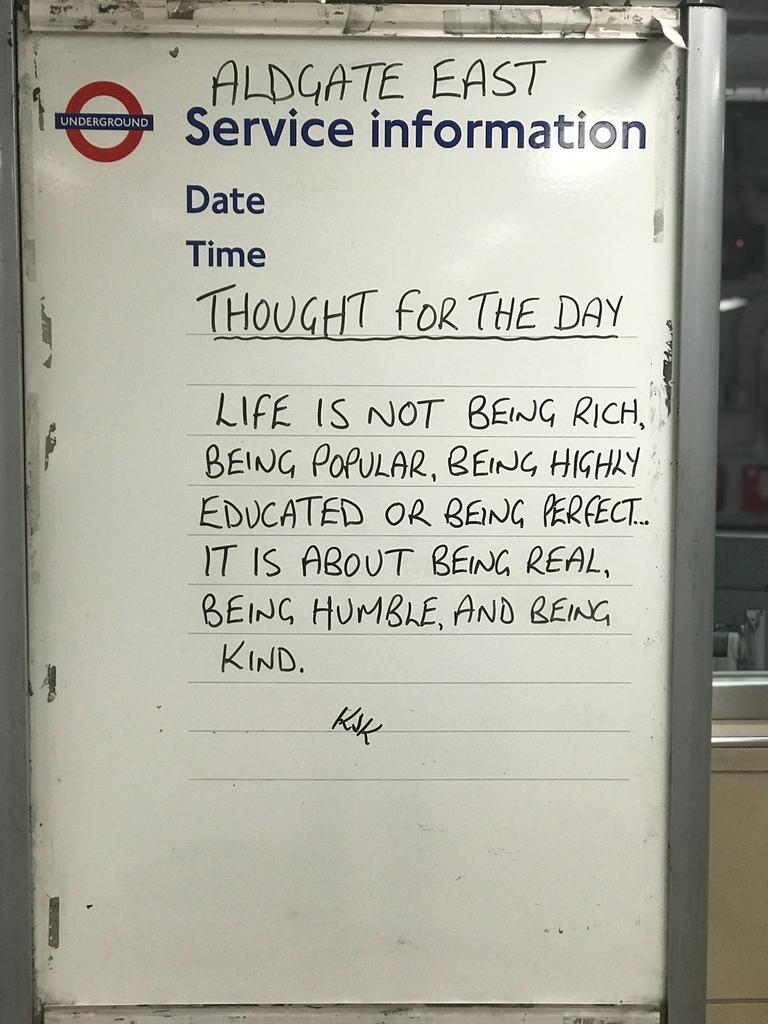 ALDGATE EAST
UNDERGROUND
Service information
Date
Time
THOUGHT FOR THE DAY
LIFE IS NOT BEING RICH,
BEING POPULAR, BEING HIGHLY
EDUCATED OR BEING PERFECT...
IT IS ABOUT BEING REAL,
BEING HUMBLE, AND BEING
KIND.
KSK